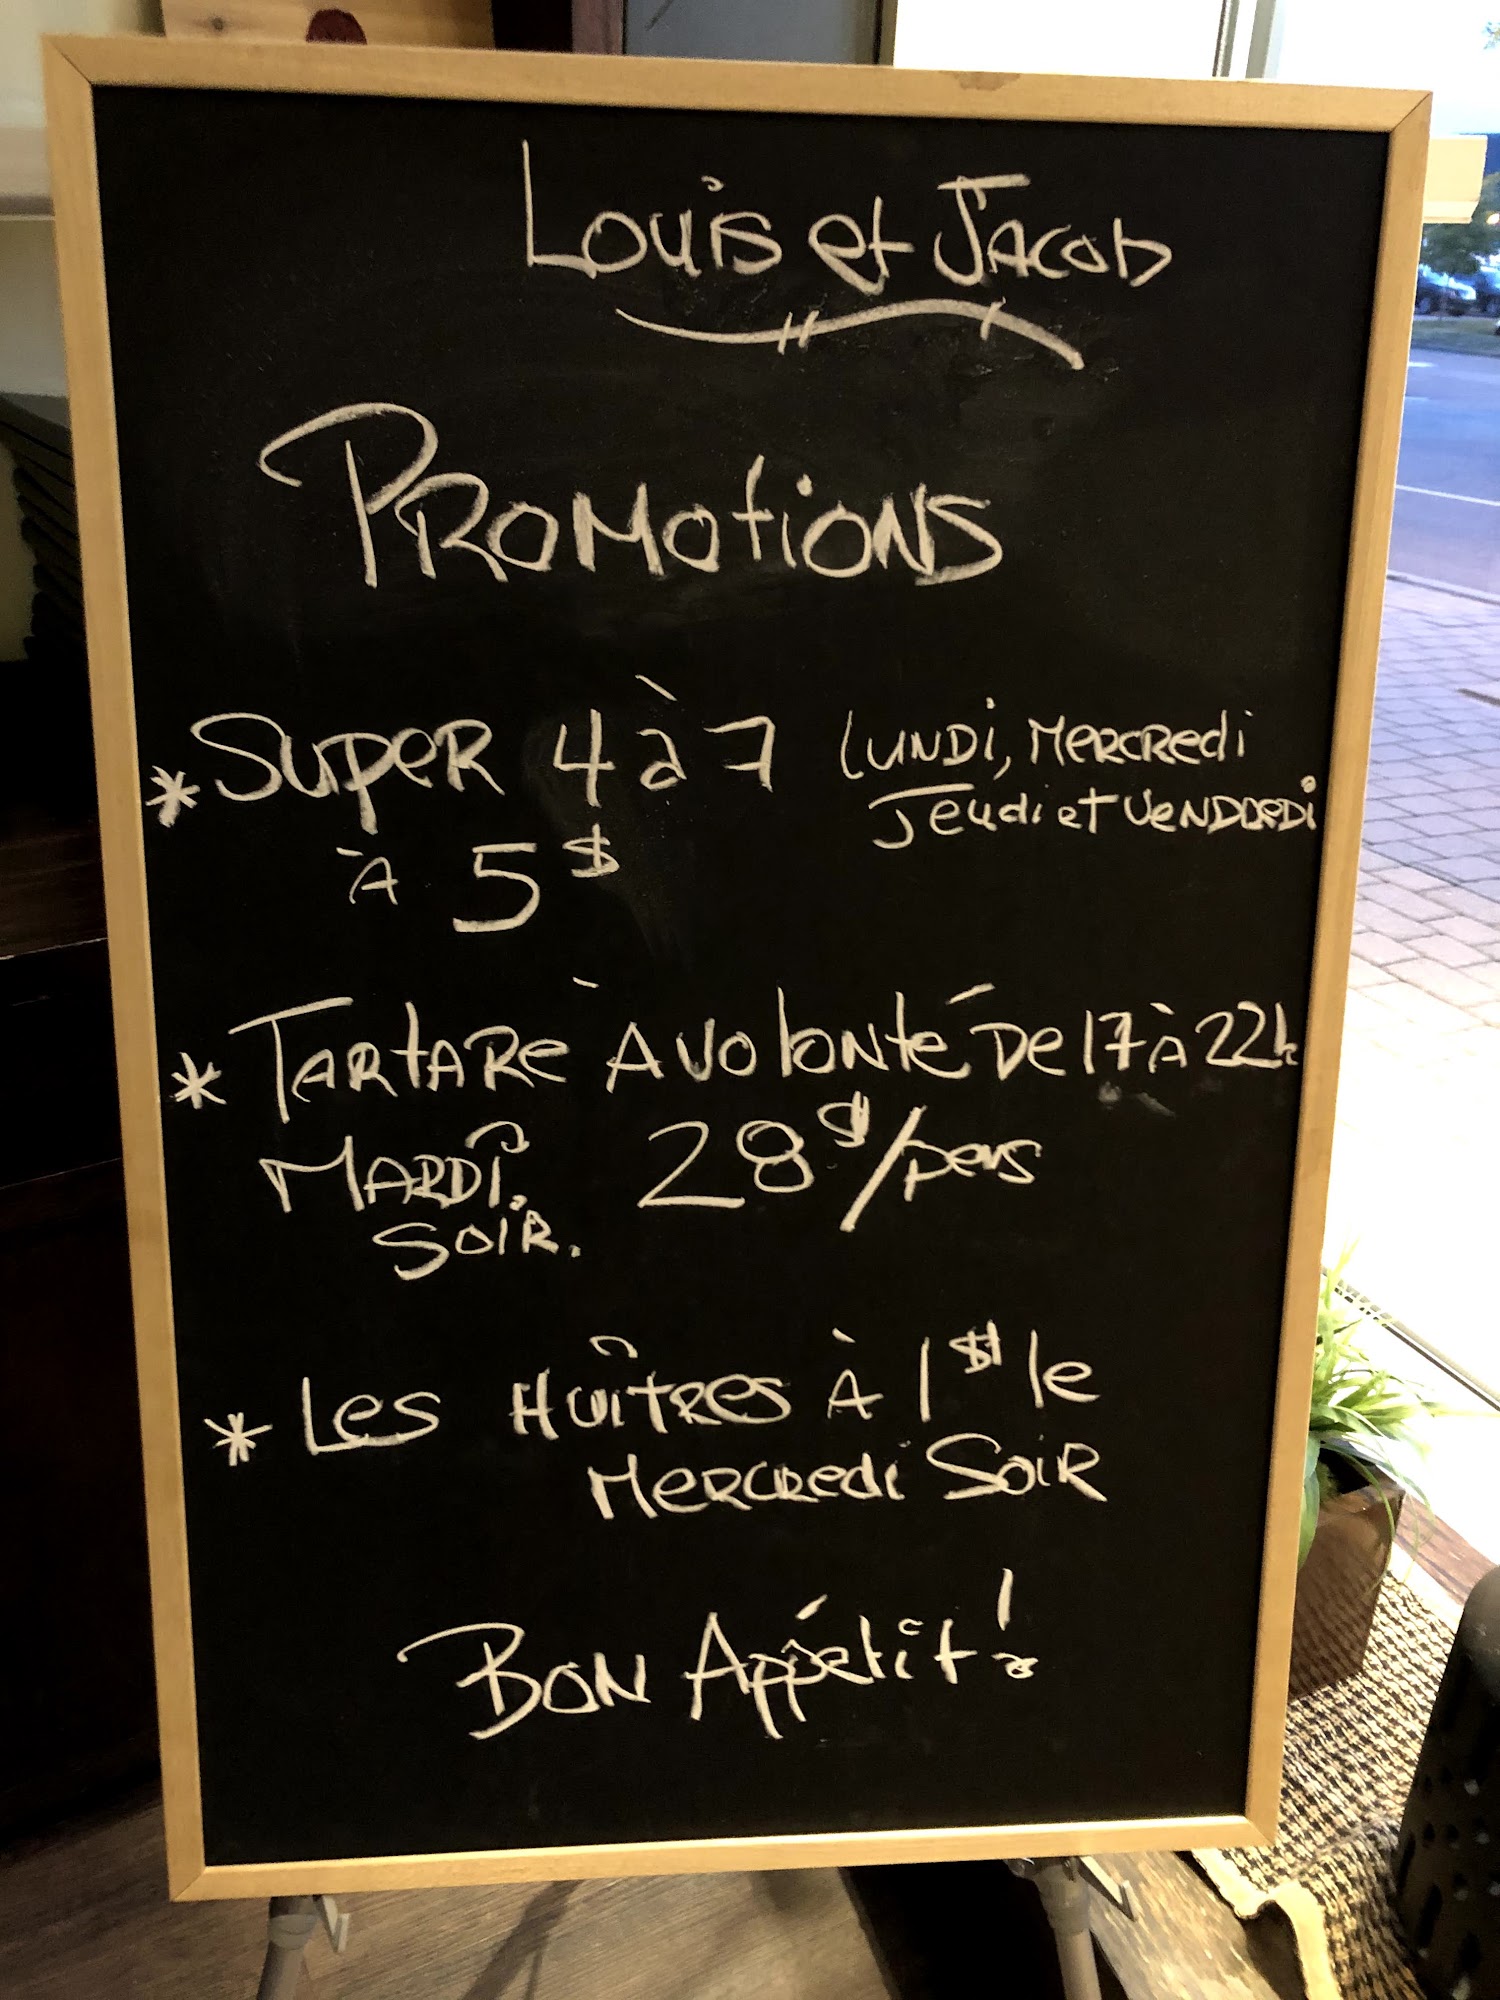 Louis et Jacob
Promotions
* Super 4 à 7 lundi, Mercredi
Jeudi et Vendredi
à 5$
* Tartare à volonté de 17 à 22h
Mardi. 28$/pers
Soir.
* Les Huîtres à 1$ le
Mercredi Soir
Bon Appétit !